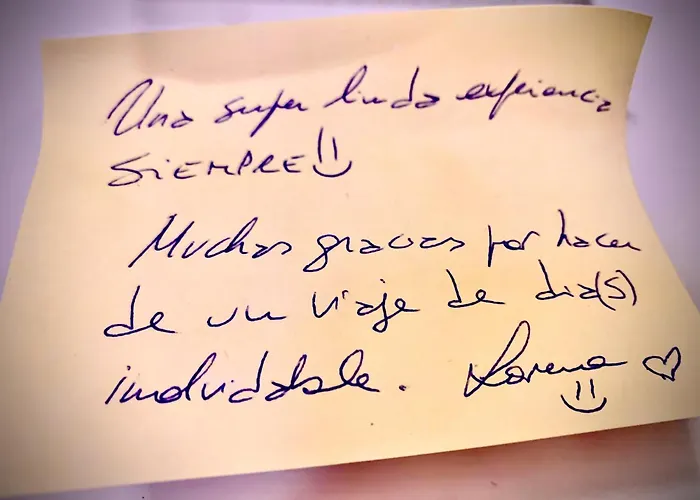 Una super linda experiencia
SIEMPRE!!
Muchas gracias por hacer
de un viaje de dia(s)
inolvidable. Lorena ♡